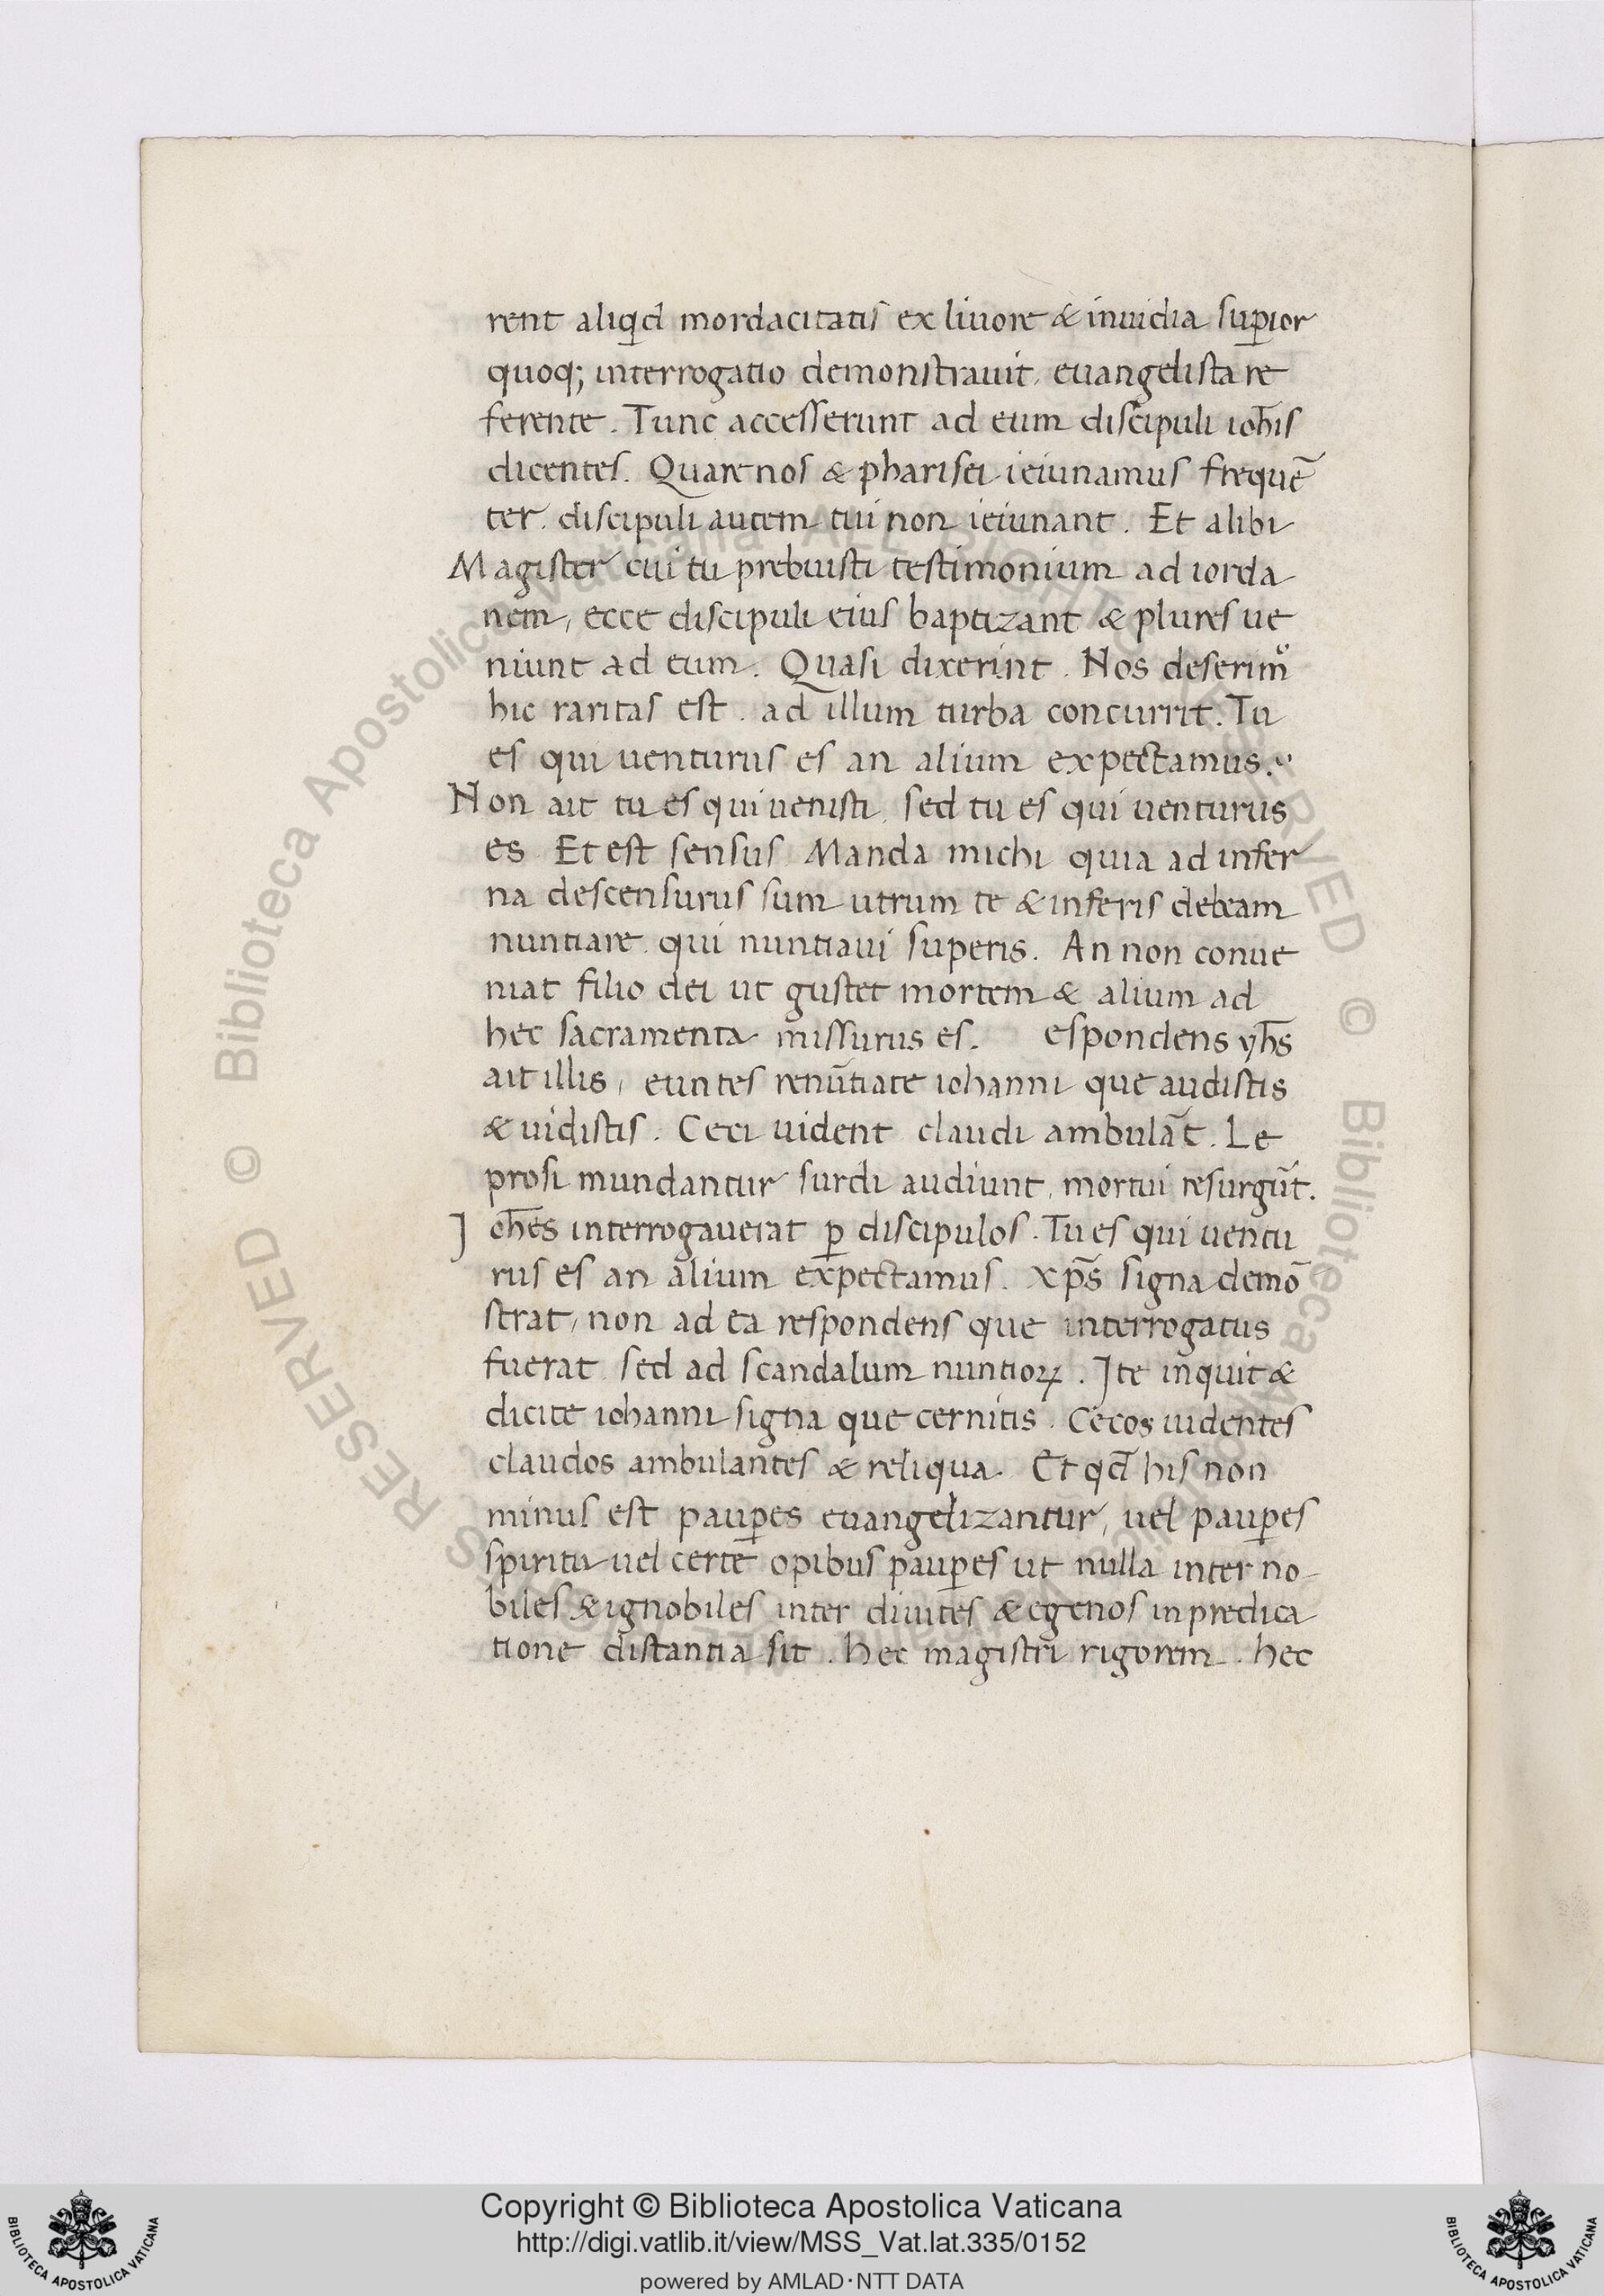 rent aliqd mordacitatis ex liuore & inuidia supior
quoq; interrogatio demonstrauit, euangelista re
ferente. Tunc accesserunt ad eum discipuli ioh̅is
dicentes. Quare nos & pharisei ieiunamus frequē
ter. discipuli autem tui non ieiunant. Et alibi
Magister cui tu prebuisti testimonium ad iorda
nem, ecce discipuli eius baptizant & plures ue
niunt ad eum. Quasi dixerint. Nos deserim᷒
hic raritas est. ad illum turba concurrit. Tu
es qui uenturus es an alium expectamus.
Non ait tu es qui uenisti, sed tu es qui uenturus
es. Et est sensus. Manda michi quia ad infer
na descensurus sum utrum te & inferis debeam
nuntiare qui nuntiaui superis. An non conue
niat filio dei ut gustet mortem & alium ad
hec sacramenta missurus es. espondens yh̅s
ait illis, euntes renūtiate iohanni que audistis
& uidistis. Ceci uident claudi ambulāt. Le
prosi mundantur surdi audiunt, mortui resurgūt.
Ioh̅es interrogauerat ꝑ discipulos. Tu es qui uentu
rus es an alium expectamus. xp̅s signa demō
strat, non ad ea respondens que interrogatus
fuerat sed ad scandalum nuntioꝝ. Ite inquit &
dicite iohanni signa que cernitis. Cecos uidentes
claudos ambulantes & reliqua. Et qd̅ his non
minus est pauꝑes euangelizantur, uel pauꝑes
spiritu uel certe opibus pauꝑes ut nulla inter no-
biles & ignobiles inter diuites & egenos in predica
tione distantia sit. hec magistri rigorem. hec
© Biblioteca Apostolica Vaticana ALL RIGHTS RESERVED © Biblioteca Apostolica Vaticana ALL RIGHTS RESERVED
Copyright © Biblioteca Apostolica Vaticana
http://digi.vatlib.it/view/MSS_Vat.lat.335/0152
powered by AMLAD·NTT DATA
BIBLIOTECA APOSTOLICA VATICANA
BIBLIOTECA APOSTOLICA VATICANA